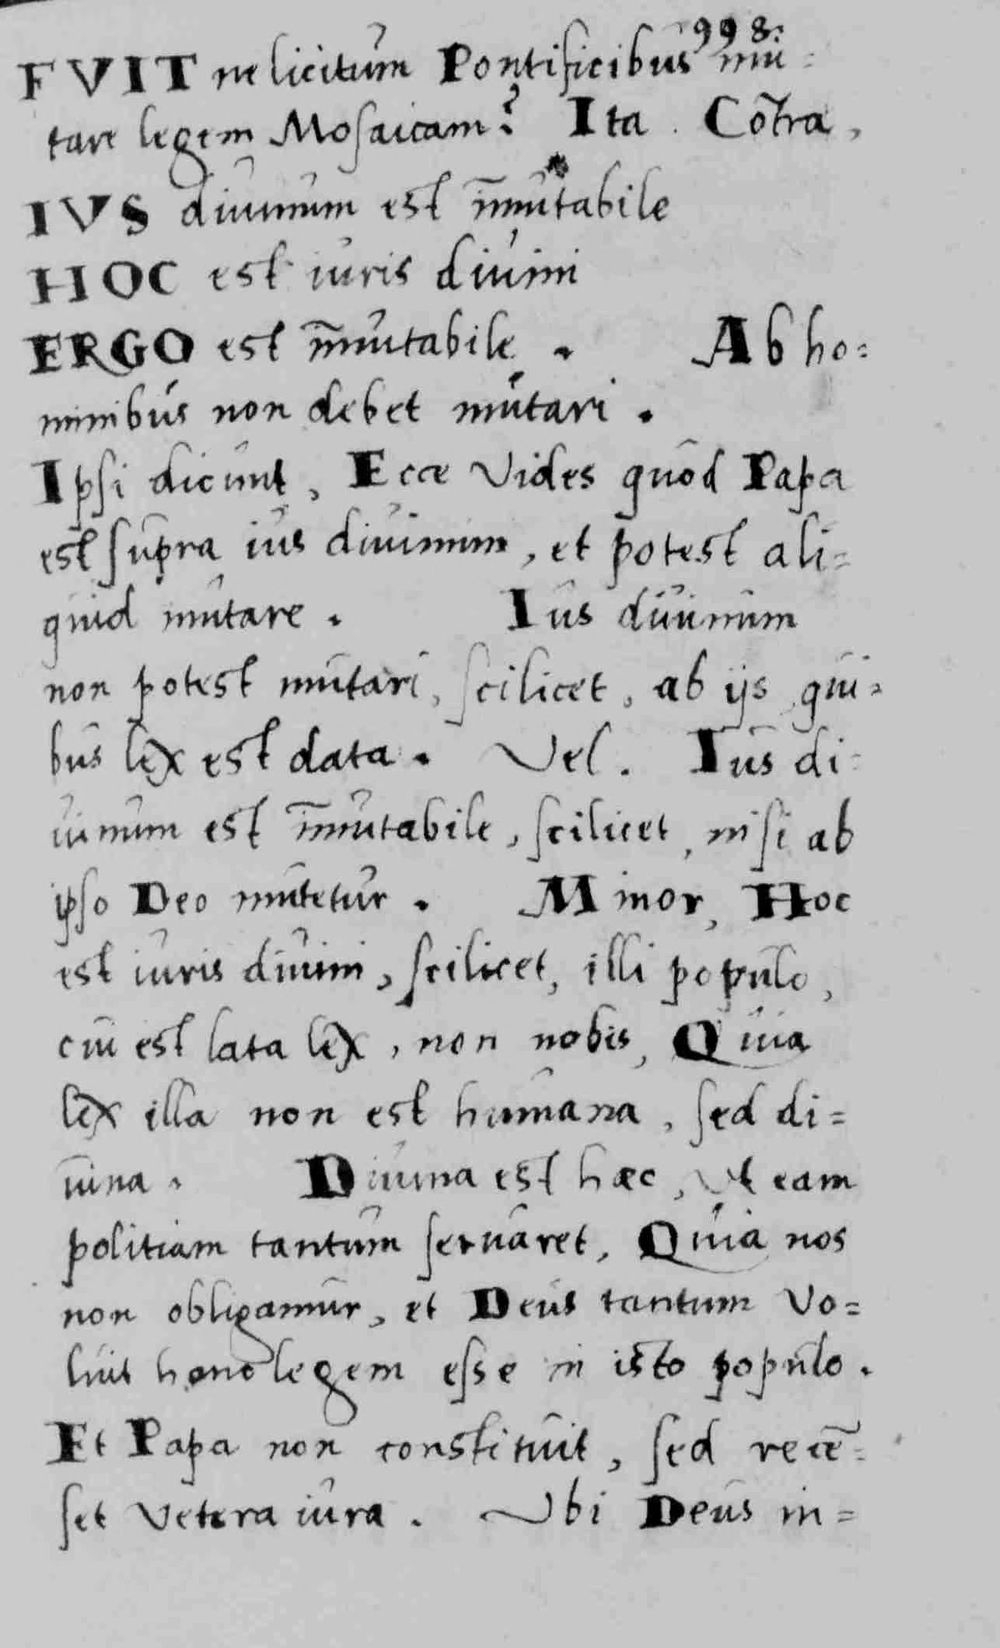 998.
FVIT ne licitum Pontificibus mu=
tare legem Mosaicam? Ita. Cōtra,
IVS diuinum est īmutabile
HOC est iuris diuini
ERGO est īmutabile. Ab ho=
minibus non debet mutari.
Ipsi dicunt, Ecce Vides quod Papa
est supra ius diuinum, et potest ali=
quid mutare. Ius diuinum
non potest mutari, scilicet, ab ijs qui=
bus lex est data. Vel. Ius di=
uinum est īmutabile, scilicet, nisi ab
ipso Deo mutetur. Minor, Hoc
est iuris diuini, scilicet, illi populo,
cui est lata lex, non nobis, Quia
lex illa non est humana, sed di=
uina. Diuina est hæc, Vt eam
politiam tantum seruaret, Quia nos
non obligamur, et Deus tantum Vo=
luit hanc legem esse in isto populo.
Et Papa non constituit, sed recē=
set Vetera iura. Vbi Deus in=